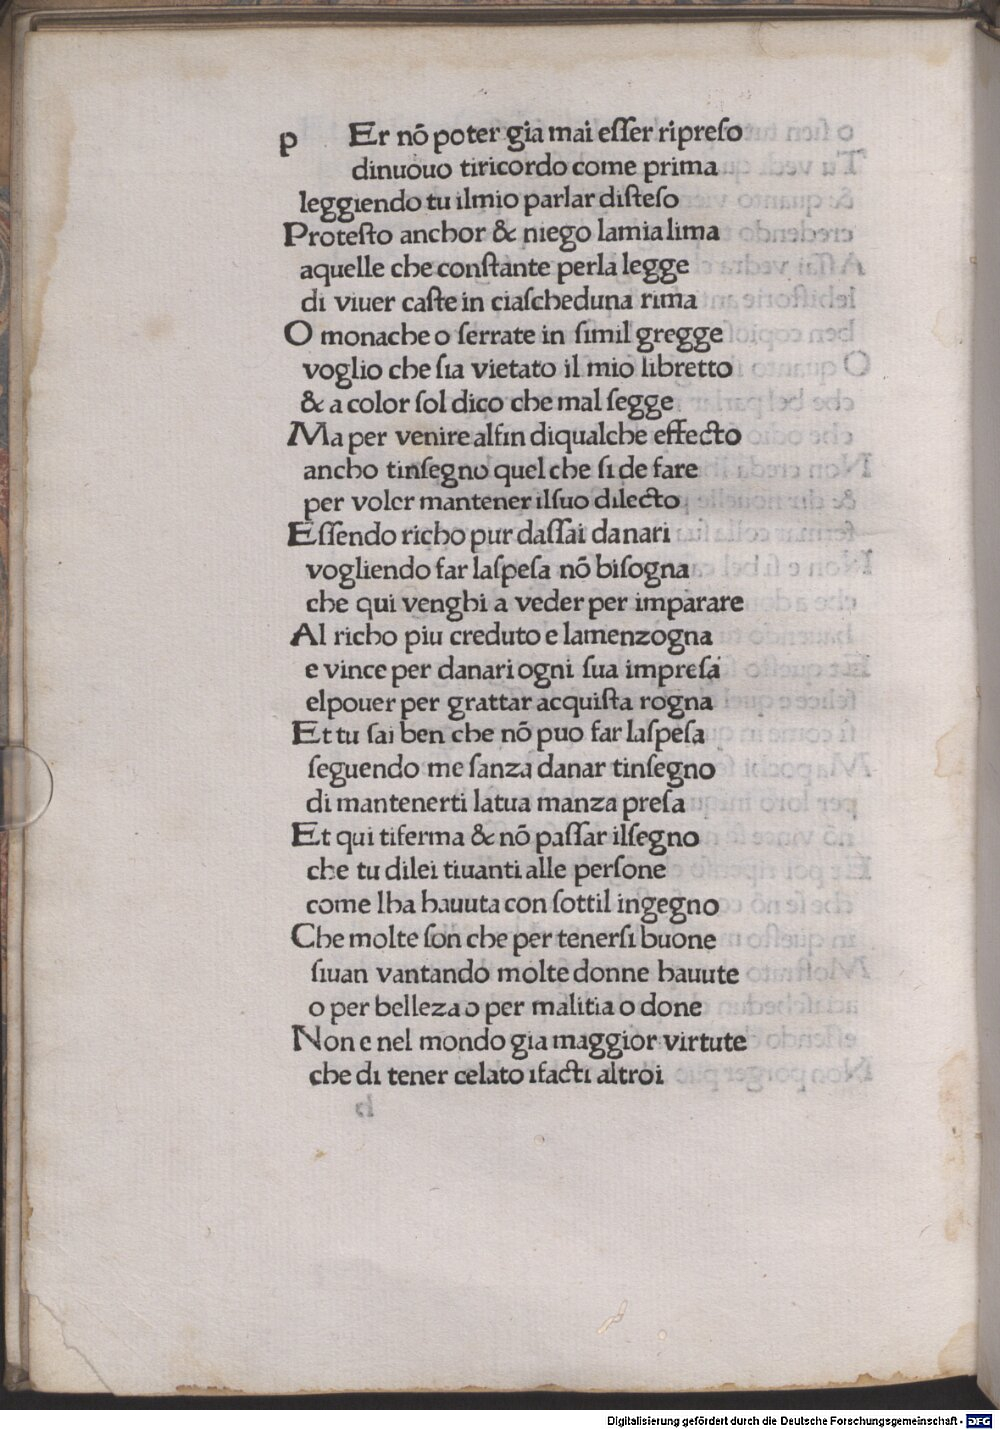 p Er nō poter gia mai eſſer ripreſo
dinuouo tiricordo come prima
leggiendo tu ilmio parlar diſteſo
Proteſto anchor & niego lamia lima
aquelle che conſtante perla legge
di viuer caſte in ciaſcheduna rima
O monache o ſerrate in ſimil gregge
voglio che ſia vietato il mio libretto
& a color ſol dico che mal ſegge
Ma per venire alfin diqualche effecto
ancho tinſegno quel che ſi de fare
per voler mantener ilſuo dilecto
Eſſendo richo pur daſſai danari
vogliendo far laſpeſa nō biſogna
che qui venghi a veder per imparare
Al richo piu creduto e lamenzogna
e vince per danari ogni sua impreſa
elpouer per grattar acquiſta rogna
Et tu ſai ben che nō puo far laſpeſa
ſeguendo me ſanza danar tinſegno
di mantenerti latua manza preſa
Et qui tiferma & nō paſſar ilſegno
che tu dilei tiuanti alle perſone
come lha hauuta con ſottil ingegno
Che molte ſon che per tenerſi buone
ſiuan vantando molte donne hauute
o per belleza o per malitia o done
Non e nel mondo gia maggior virtute
che di tener celato ifacti altroi
Digitalisierung gefördert durch die Deutsche Forschungsgemeinschaft - DFG